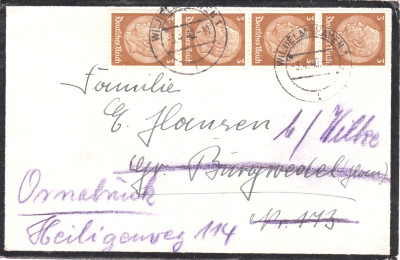 3 Deutsches Reich 3 Deutsches Reich 3 Deutsches Reich 3 Deutsches Reich
WILHELMSHAVEN 1
WILHELMSHAVEN 1
Familie
E. Hansen b/ Wilke
Gr. Burgwedel (Hann)
Nr. 173
Osnabrück
Heiligenweg 114